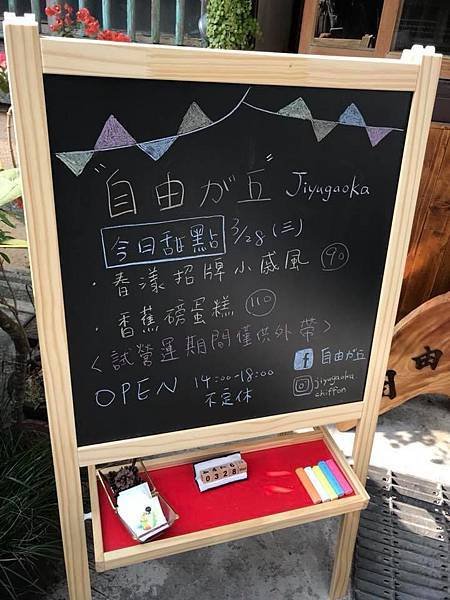 "自由が丘" Jiyugaoka
今日甜點 3/28 (三)
·春漾招牌小戚風 90
·香蕉磅蛋糕 110
<試營運期間僅供外帶>
OPEN 14:00-18:00
不定休
f 自由が丘
jiyugaoka
chiffon
自由
0328